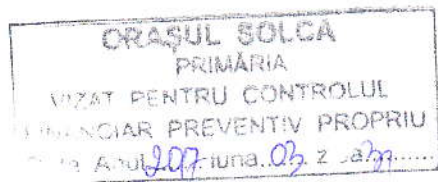 ORAȘUL SOLCA
PRIMĂRIA
VIZAT PENTRU CONTROLUL
FINANCIAR PREVENTIV PROPRIU
Anul 2017 luna 03 ziua